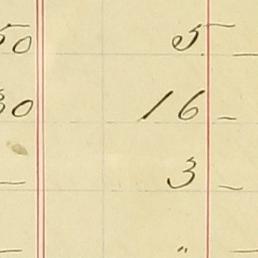 50 5 –
30 16 –
– 3 –
– " –